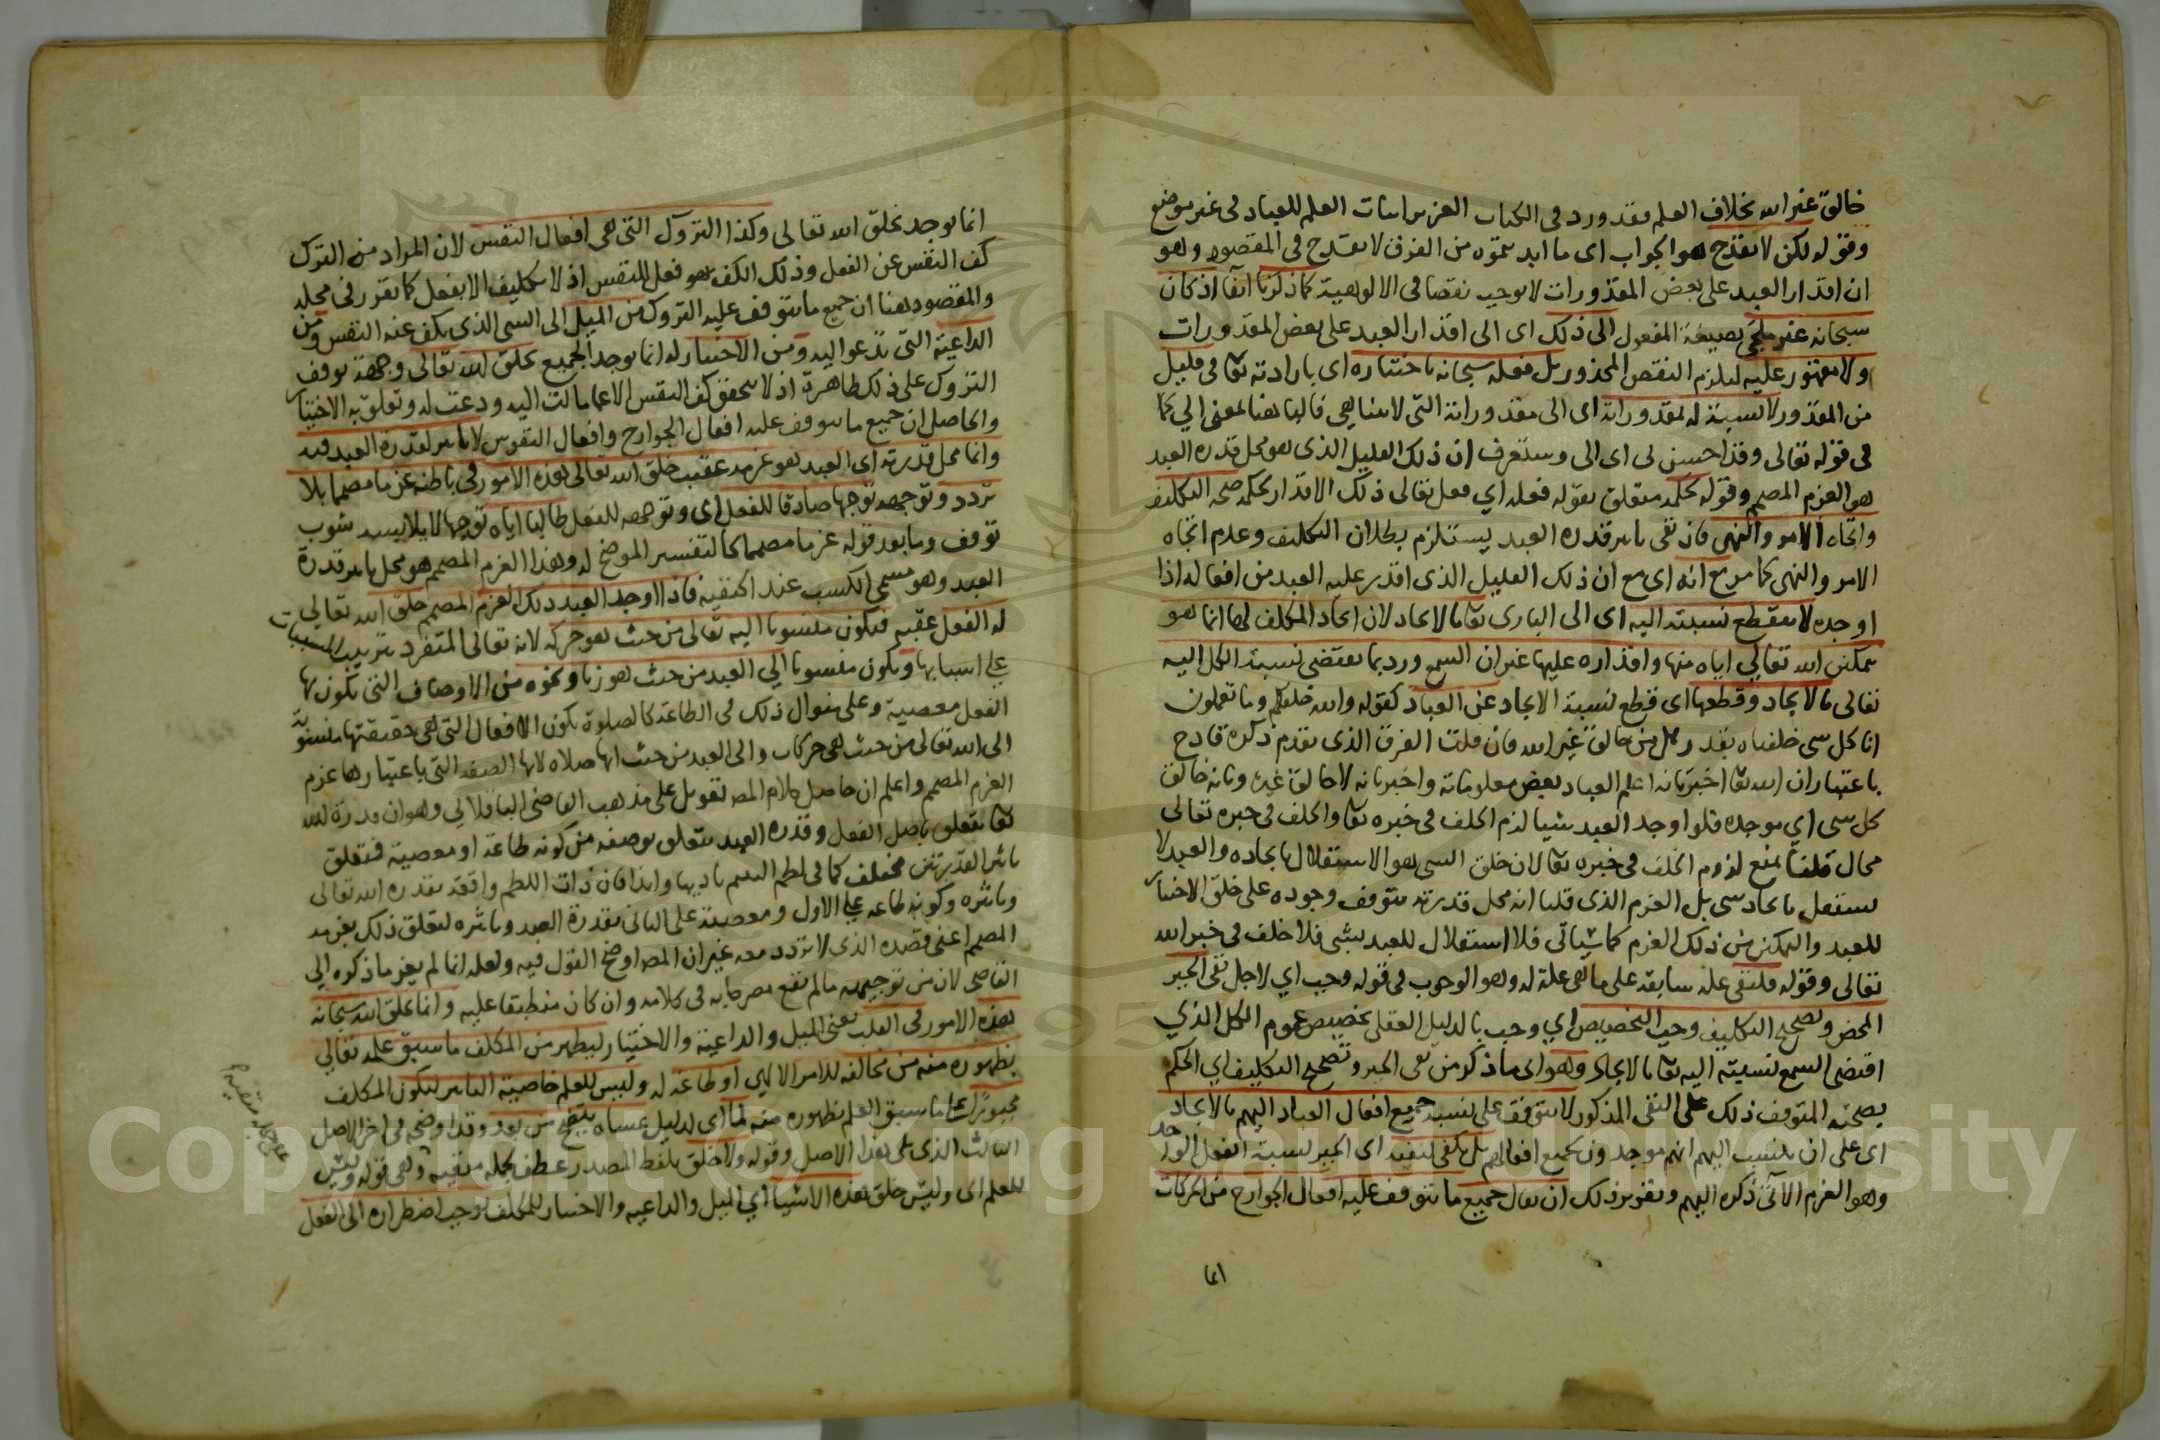 خالق غير الله بخلاف العلم فقد ورد في الكتاب العزيز اسات العلم للعباد في غير موضع
وقوله لكن لا يقدح هو الجواب اى ما ابديتموه من الفرق لا يقدح في المقصود وهو
ان اقدار العبد على بعض المقدورات لا يوجب نقصا في الالوهية كما ذكرنا آنفا اذ كان
سبحانه غير ملجئ بصيغة المفعول الى ذلك اى الى اقدار العبد على بعض المقدورات
ولا مقهور عليه ليلزم النقص المحذور بل فعله سبحانه باختياره اى بارادته تعا في قليل
من المقدور لا نسبة له لمقدوراته اى الى مقدوراته التى لا تتناهى فاللام هنا لمعنى الي كما
في قوله تعالى وقد احسن لى اى الى وستعرف ان ذلك القليل الذى هو محل قدرة العبد
هو العزم المصمم وقوله بحكمة متعلق بقوله فعله اي فعل تعالى ذلك الاقدار بحكمة صحة التكليف
واتجاه الامر والنهى فان نفى تاثير قدرة العبد يستلزم بطلان التكليف وعدم اتجاه
الامر والنهى كما مر مع انه اى مع ان ذلك القليل الذى اقدر عليه العبد من افعاله اذا
اوجده لا ينقطع نسبته اليه اى الى البارى تعا بالايجاد لان ايجاد المكلف لها انما هو
بتمكين الله تعالي اياه منها واقداره عليها غير ان السمع ورد بما يقتضى نسبة الكل اليه
تعالى بالايجاد وقطعها اى قطع نسبة الايجاد عن العباد كقوله والله خلقكم وما تعملون
انا كل شى خلقناه بقدر هل من خالق غير الله فان قلت الفرق الذى تقدم ذكره قادح
باعتبار ان الله تعا اخبر بانه اعلم العباد بعض معلوماته واخبر بانه لا خالق غيره وبانه خالق
كل شى اي موجده فلو اوجد العبد شيا لزم الخلف في خبره تعا والخلف في خبره تعالى
محال قلنا نمنع لزوم الخلف في خبره تعا لان خلق الشى هو الاستقلال بايجاده والعبد لا
يستقل بايجاد شى بل العزم الذى قلنا انه محل قدرته يتوقف وجوده على خلق الاختيار
للعبد والتمكين من ذلك العزم كما سياتى فلا استقلال للعبد بشى فلا خلف في خبر الله
تعالى وقوله فلنفى علة سابقة على ما هى علة له وهو الوجوب في قوله وجب اي لاجل نفى الجبر
المحض وتصحيح التكليف وجب التخصيص اي وجب بالدليل العقلى تخصيص عموم الكل الذي
اقتضى السمع نسبته اليه تعا بالايجاد وهو اى ما ذكر من نفى الجبر وتصحيح التكليف اي الحكم
بصحته المتوقف ذلك على النفى المذكور لا يتوقف على نسبة جميع افعال العباد اليهم بالايجاد
اى على ان ينسب اليهم انهم موجدون لجميع افعالهم بل يكفى لنفيه اى الجبر نسبة الفعل الواحد
وهو العزم الآتى ذكره اليهم وتقرير ذلك ان يقال جميع ما تتوقف عليه افعال الجوارح من الحركات
انما
انما يوجد بخلق الله تعالى وكذا التروك التى هى افعال النفس لان المراد من الترك
كف النفس عن الفعل وذلك الكف هو فعل للنفس اذ لا تكليف الا بفعل كما تقرر في محله
والمقصود هنا ان جميع ما تتوقف عليه التروك من الميل الى الشى الذى يكف عنه النفس ومن
الداعية التى تدعو اليه ومن الاختيار له انما يوجد الجميع بخلق الله تعالى وجهة توقف
التروك على ذلك ظاهرة اذ لا يتحقق كف النفس الا عما مالت اليه ودعت له وتعلق به الاختيار
والحاصل ان جميع ما يتوقف عليه افعال الجوارح وافعال النفوس لا تاثير لقدرة العبد فيه
وانما محل قدرته اى العبد هو عزمه عقيب خلق الله تعالى هذه الامور في باطنه عزما مصمما بلا
تردد وتوجهه توجها صادقا للفعل اى وتوجهه للفعل طالبا اياه توجها لا يلابسه شوب
توقف وما بعد قوله عزما مصمما كالتفسير الموضح له وهذا العزم المصمم هو محل تاثير قدرة
العبد وهو مسمى الكسب عند الحنفية فاذا اوجد العبد ذلك العزم المصمم خلق الله تعالى
له الفعل عقبه فيكون منسوبا اليه تعالى من حيث هو حركة لانه تعالى المتفرد بترتيب المسببات
على اسبابها ويكون منسوبا الي العبد من حيث هو زنا ونحوه من الاوصاف التى يكون بها
الفعل معصية وعلى منوال ذلك في الطاعة كالصلوة يكون الافعال التى هى حقيقتها منسوبة
الى الله تعالى من حيث هى حركات والى العبد من حيث انها صلاة لانها الصفة التى باعتبارها عزم
العزم المصمم واعلم ان حاصل كلام المص تعويل على مذهب القاضى الباقلانى وهو ان قدرة الله
تعا تتعلق باصل الفعل وقدرة العبد تتعلق بوصفه من كونه طاعة او معصية فمتعلق
تاثير القدرتين مختلف كما في لطم اليتيم تاديبا وايذا فان ذات اللطم واقعة بقدرة الله تعالى
وتاثيره وكونه طاعة على الاول ومعصية على الثانى بقدرة العبد وتاثيره لتعلق ذلك بعزمه
المصمم اعنى قصده الذى لا تردد معه غير ان المص اوضح القول فيه ولعله انما لم يعز ما ذكره الى
القاضى لان من توجيهه ما لم تقع مصرحا به في كلامه وان كان منطبقا عليه وانما خلق الله سبحانه
هذه الامور في القلب يعنى الميل والداعية والاختيار ليظهر من المكلف ما سبق علمه تعالي
بظهوره منه من مخالفة للامر الالهي او طاعة له وليس للعلم خاصية التاثير ليكون المكلف
مجبورا على ما سبق العلم بظهوره منه لما اى لدليل عساه يتضح من بعد وقد اوضحه في اخر الاصل
الثالث الذى على هذا الاصل وقوله ولا خلق بلفظ المصدر عطف بجملة منفية وهى قوله وليس
للعلم اى وليس خلق هذه الاشيا اي الميل والداعية والاختيار للمكلف يوجب اضطراره الى الفعل
على جملة منفية